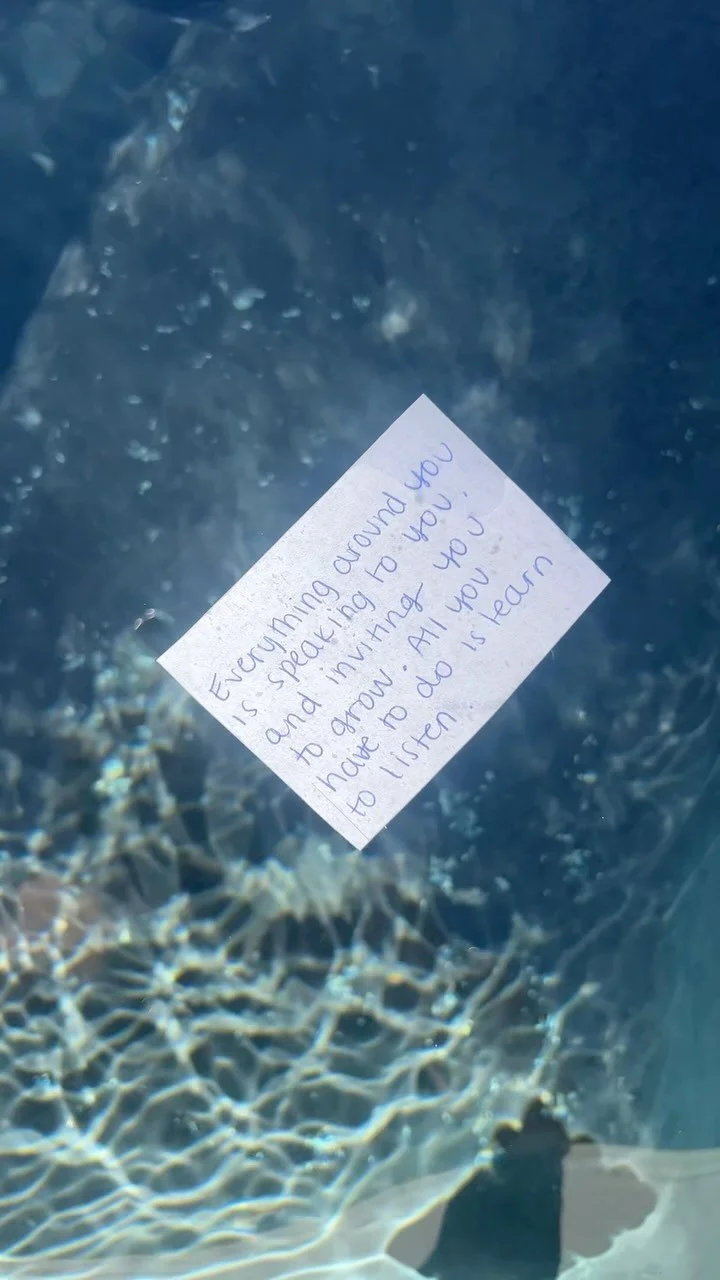 Everything around you
is speaking to you.
and inviting you
to grow. All you
have to do is learn
to listen.